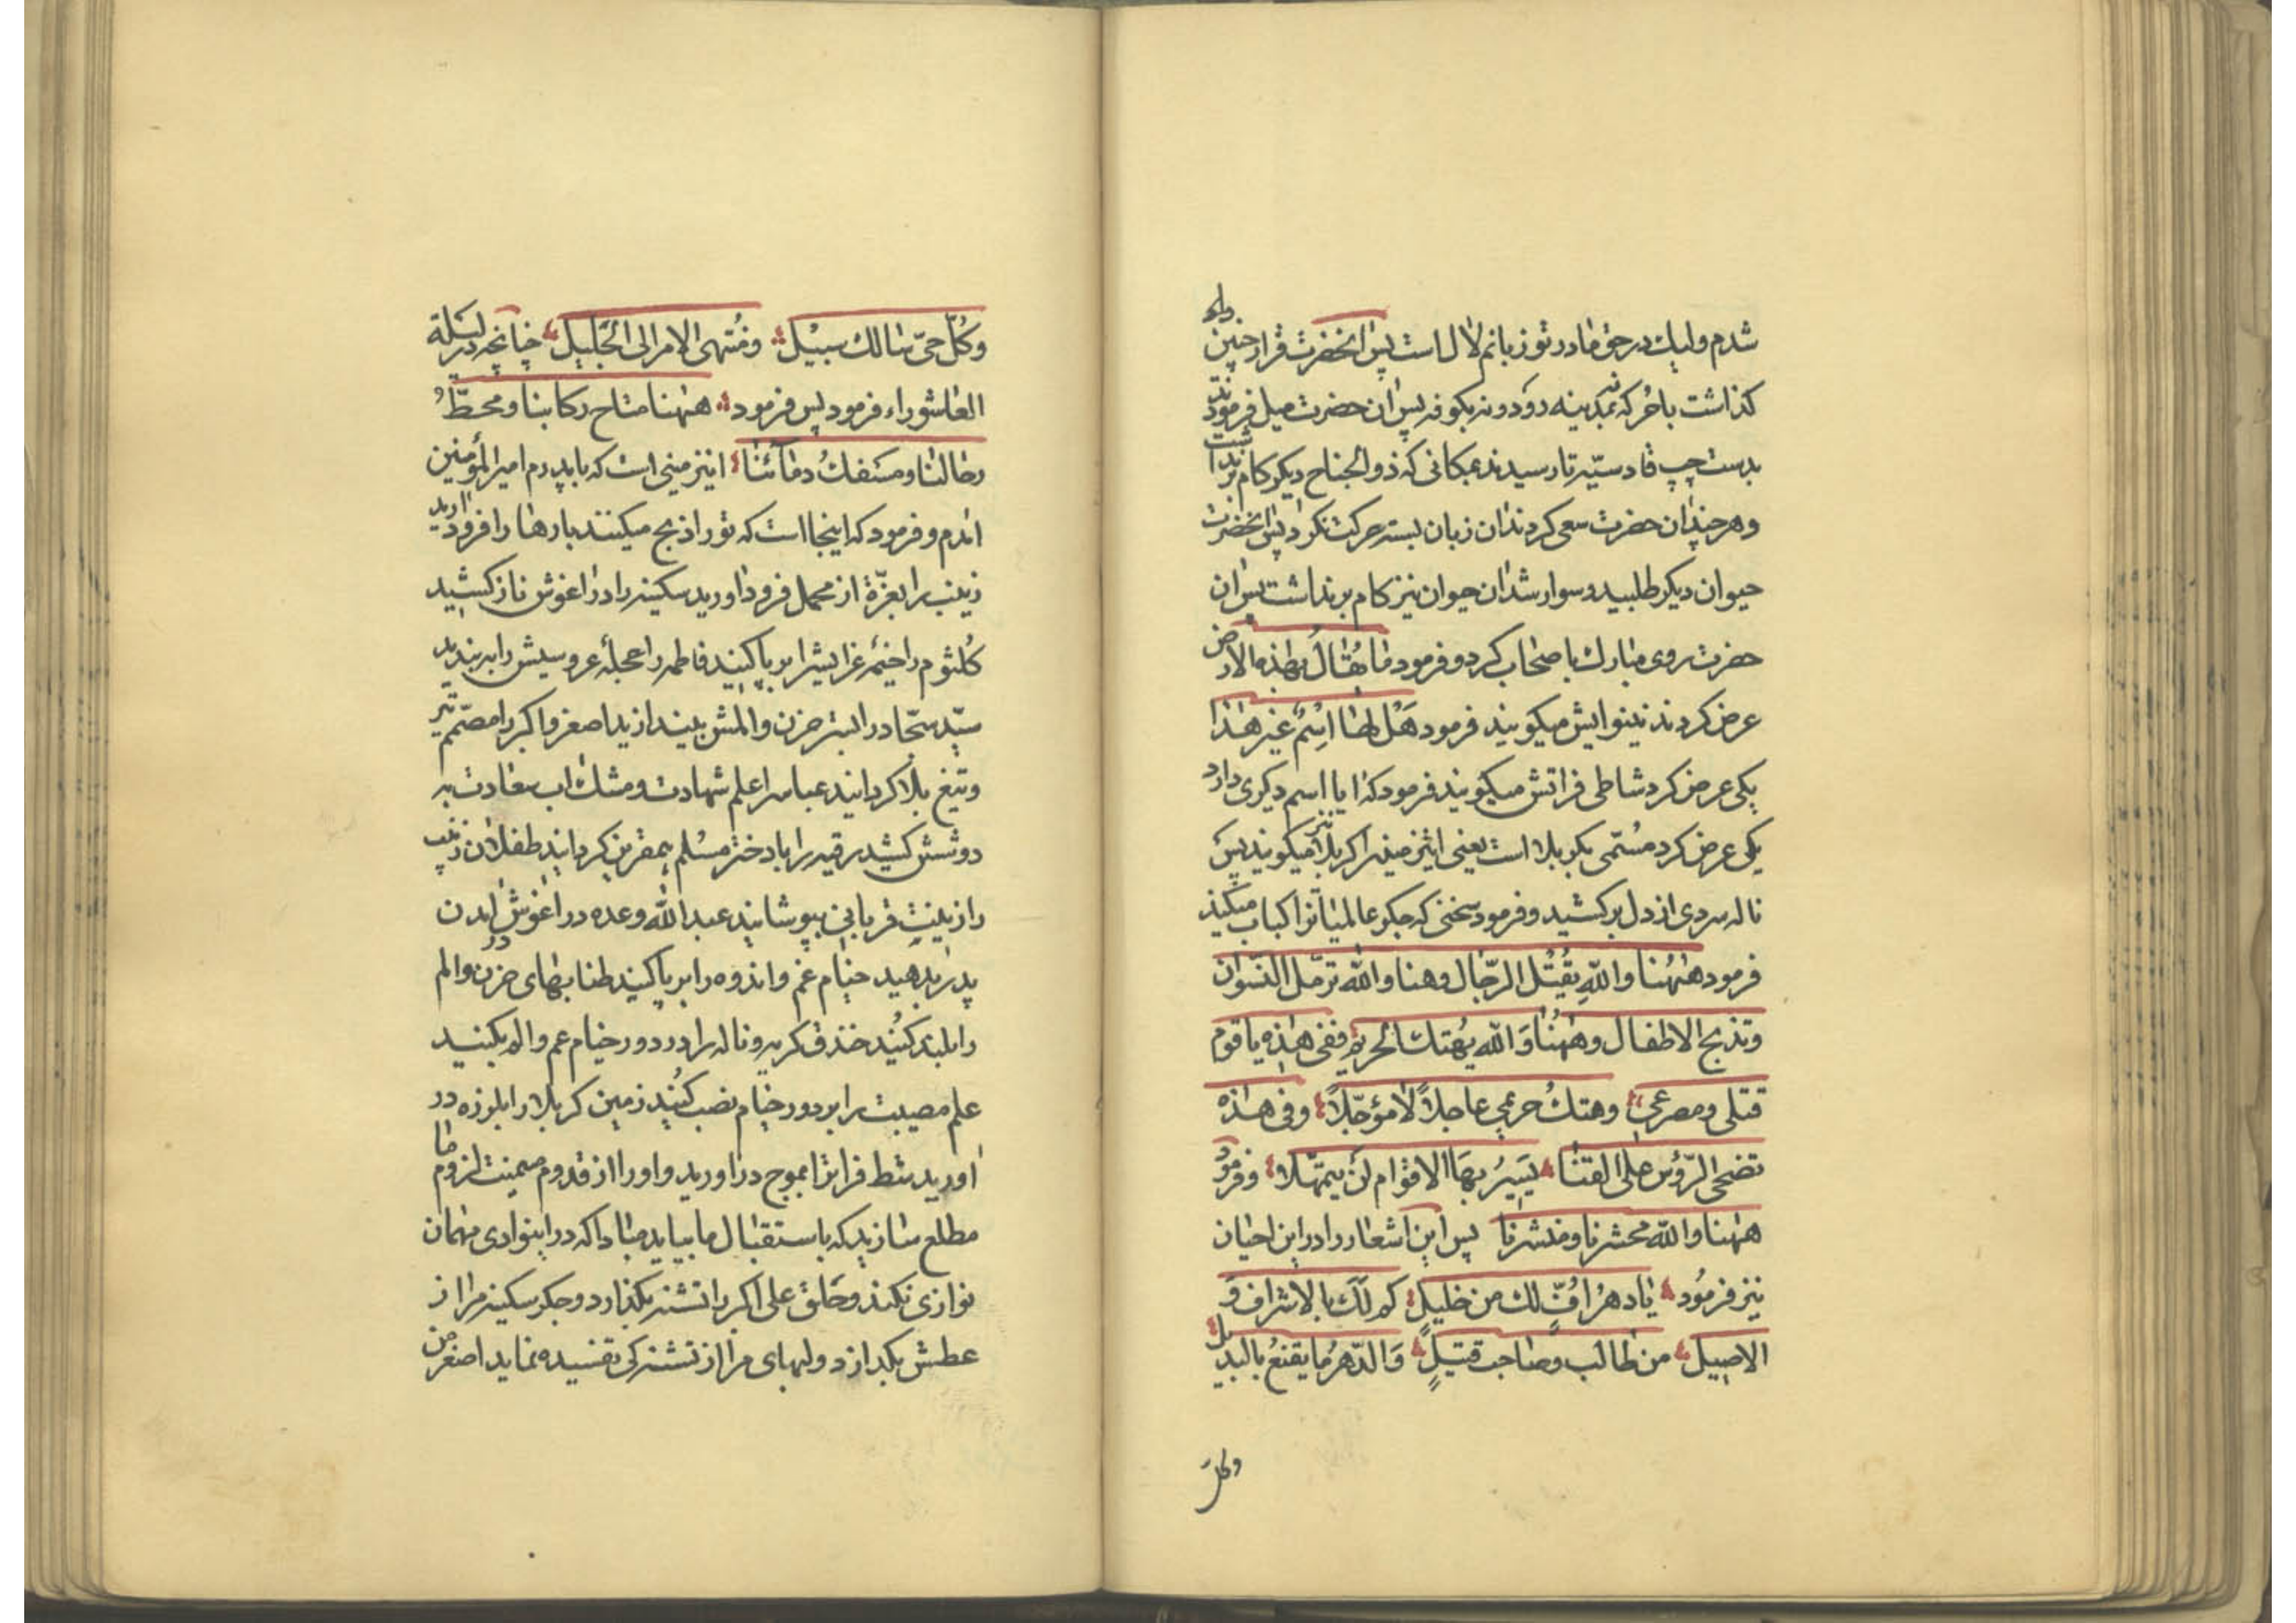 شدم ولیك در حق مادر تو زبانم لال است پس انحضرت قرار چنین داد
كذاشت با حر كه نه بمدینه رود و نه بكوفه پس ان حضرت میل فرمودند
بدست چپ قادسیّه تا رسیدند بمكانی كه ذوالجناح دیكر كام برنداشت
و هر چند ان حضرت سعی كردند ان زبان بسته حركت نكرد پس انحضرت
حیوان دیكر طلبید و سوار شد ان حیوان نیز كام برنداشت پس ان
حضرت روی مبارك باصحاب كرد و فرمود ما یُقالُ بهٰذه الارض
عرض كردند نینوایش میكویند فرمود هَل لها اِسْمٌ غیر هٰذا
یكی عرض كرد شاطی فراتش میكویند فرمود كه ایا اسم دیكری دارد
یكی عرض كرد مُسمّی بكربلا است یعنی اینزمینرا كربلا نیز میكویند پس
ناله سردی از دل بركشید و فرمود سخنی كه جكر عالمیانرا كباب میكند
فرمود هٰهُنا واللّهِ یُقْتل الرّجال وهنا واللّه ترمّل النّسوان
وتذبح الاطفال وهٰهُنا وَاللّه یُهتك الحریم ففی هٰذه یا قوم
قتلی ومصرعی وهتكُ حریمی عاجلاً لا مؤجّلاً وفی هٰذه
تضحی الرّؤس علی القنا یَسیرُ بهَا الاقوام لن یمهّلا و فرمود
هٰهنا واللّه محشرنا ومنشرنا پس این اشعار را در این احیان
نیز فرمُود یٰا دهرُ افٍّ لك من خلیلٍ كم لَكَ بالاشراف وَ
الاصیل من طالب وصٰاحب قتیلٍ وَالدّهرُ ما یقنعُ بالبدیل
وكلّ
وَكُلّ حیّ سٰالك سبیْل ومُنتهی الامر الی الجَلیلِ چنانچه در لیلة
العاشوراء فرمود پس فرمود هٰهنا مناخ ركابنا ومحطّ
رحالنا ومسفكُ دمآئنا اینزمینی است كه با پدرم امیرالمؤمنین
امدم و فرمود كه اینجا است كه تو را ذبح میكنند بارها را فرود ارید
زینب را بعزّة از محمل فرود اورید سكینه را در اغوش ناز كشید
كُلثوم را خیمهٔ عزایش را برپا كنید فاطمه را حجلهٔ عروسیش را به بندید
سیّد سجّاد را بستر حزن و المش بیندازید اصغر و اكبر را مصمّم تیر
و تیغ بلا كردانید عباس را علم شهادت و مشك اب سعادت به
دوشش كشید رقیه را با دختر مسُلم همقرین كردانید طفلان زینب
را زینتِ قربانی بپوشانید عبداللّه وعده در اغوش امدن
پدر بدهید خیام غم و اندوه را برپا كنید طنابهای حزن و الم
را بلند كنُید خندق كریه و ناله را در دور خیام غم و الم بكنید
علم مصیبت را بر دور خیام نصب كُنید زمین كربلا را بلرزه در
اورید شط فراترا بموج در اورید و اورا از قدوم میمنت لزوم ما
مطلع سازید كه باستقبال ما بیاید مبادا كه در اینوادی مهمان
نوازی نكند و حَلق علی اكبر را تشنه بكذارد و جكر سكینه مرا از
عطش بكدازد و لبهای مرا از تشنه كی تفسیده نماید اصغر من